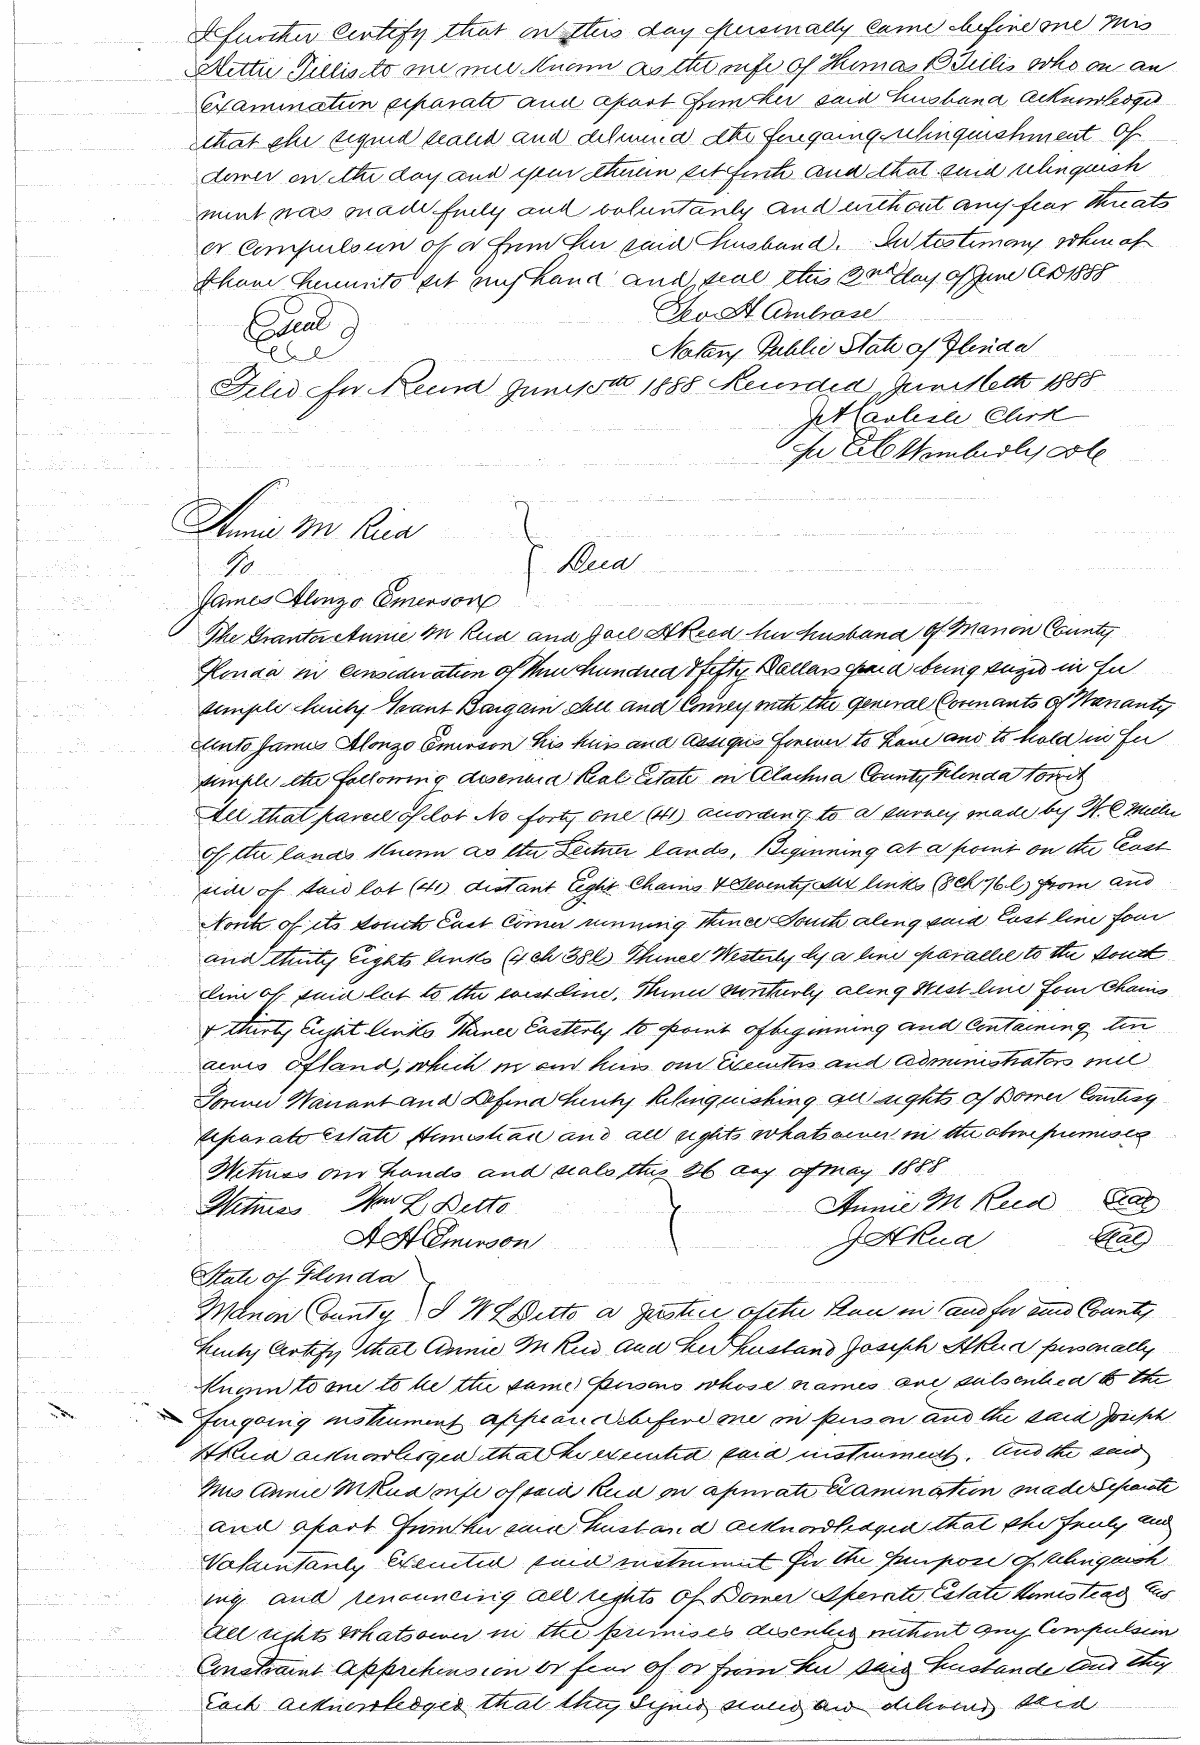 I further certify that on this day personally came before me Mrs
Hettie Tillis to me well known as the wife of Thomas B Tillis who on an
examination separate and apart from her said husband acknowledged
that she signed sealed and delivered the foregoing relinquishment of
dower on the day and year therein set forth and that said relinquish
ment was made freely and voluntarily and without any fear threats
or compulsion of or from her said husband. In testimony whereof
I have hereunto set my hand and seal this 2nd day of June AD 1888
Seal
Geo H Ambrose
Notary Public State of Florida
Filed for Record June 15th 1888 Recorded June 16th 1888
J A Carlisle Clerk
per E C Wimberly DC
Annie M Reed
To
Deed
James Alonzo Emerson
The Grantor Annie M Reed and Joel A Reed her husband of Marion County
Florida in consideration of three hundred & fifty Dollars paid being seized in fee
simple hereby Grant Bargain Sell and Convey with the general Covenants of Warranty
unto James Alonzo Emerson his heirs and assigns forever to have and to hold in fee
simple the following described Real Estate in Alachua County Florida towit
All that parcel of lot No forty one (41) according to a survey made by H. C Miller
of the lands known as the Leitner lands, Beginning at a point on the East
side of said lot (41) distant Eight Chains & Seventy six links (8 Ch 76 l) from and
North of its South East Corner running thence South along said East line four
and thirty Eights links (4 ch 38 l) Thence Westerly by a line parallel to the South
line of said lot to the west line, Thence northerly along West line four Chains
& thirty Eight links Thence Easterly to point of beginning and Containing ten
acres of land, which we our heirs our Executors and administrators will
Forever Warrant and Defend hereby Relinquishing all rights of Dower Courtesy
separate estate Homestead and all rights whatsoever in the above premises
Witness our hands and seals this 26 day of May 1888
Witness Wm L Ditto
Annie M Reed Seal
A H Emerson
J A Reed Seal
State of Florida
Marion County I W L Ditto a Justice of the Peace in and for said County
hereby certify that Annie M Reed and her husband Joseph A Reed personally
known to me to be the same persons whose names are subscribed to the
foregoing instrument appeared before me in person and the said Joseph
A Reed acknowledged that he executed said instrument. And the said
Mrs Annie M Reed wife of said Reed on a private Examination made Separate
and apart from her said husband acknowledged that she freely and
Voluntarily Executed said instrument for the purpose of relinquish
ing and renouncing all rights of Dower Seperate Estate Homestead and
all rights whatsoever in the premises described without any Compulsion
Constraint Apprehension or fear of or from her said husbande and they
Each acknowledged that they signed sealed and delivered said